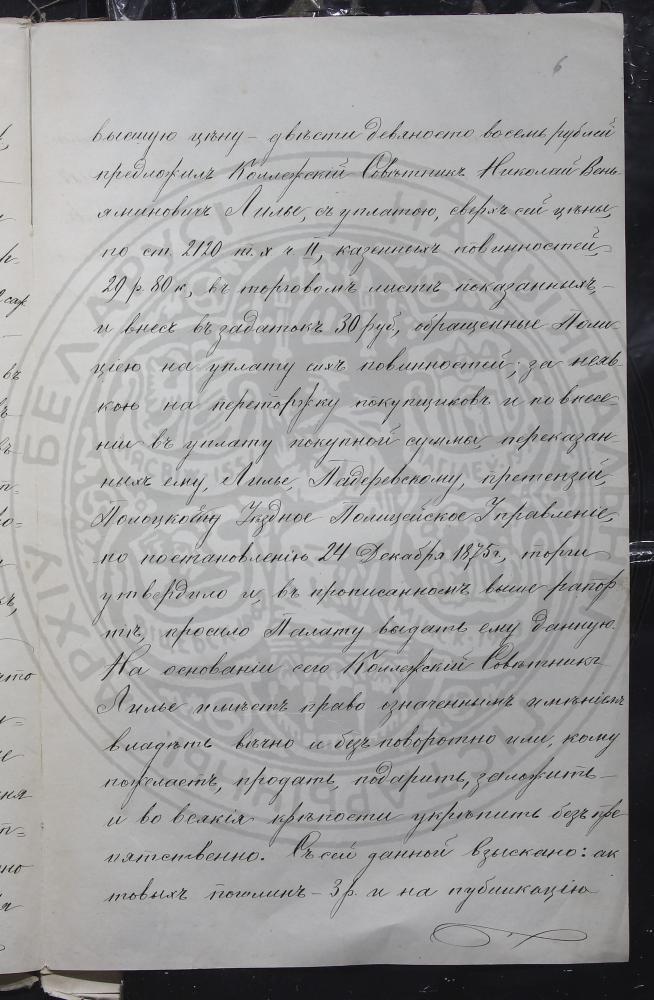 6
высшую цѣну – двѣсти девяносто восемь рублей
предложилъ Коллежскій Совѣтникъ Николай Вень-
яминовичъ Лилье, съ уплатою, сверхъ сей цѣны,
по ст. 2120 т. X ч II, казенныхъ повинностей,
29 р. 80 к., въ торговомъ листѣ показанныхъ, –
и внесъ въ задатокъ 30 руб., обращенные Поли-
ціею на уплату сихъ повинностей; за неяв-
кою на переторжку покупщиковъ и по внесе-
нии въ уплату покупной суммы, переказан-
ныхъ ему, Лилье, Падеревскому, претензій,
Уѣздное Полицейское Управленіе,
по постановленію 24 Декабря 1875 г., торги
утвердило и, въ прописанномъ выше рапор
тѣ, просило Палату выдать ему данную.
На основаніи сего Коллежскій Совѣтникъ
Лилье имѣетъ право означеннымъ имѣніемъ
владѣть вѣчно и безповоротно или, кому
пожелаетъ, продать, подарить, заложить –
и во всякія крѣпости укрѣпить безпре
пятственно. Съ сей данной взыскано: ак
товыхъ пошлинъ – 3 р. и на публикацію